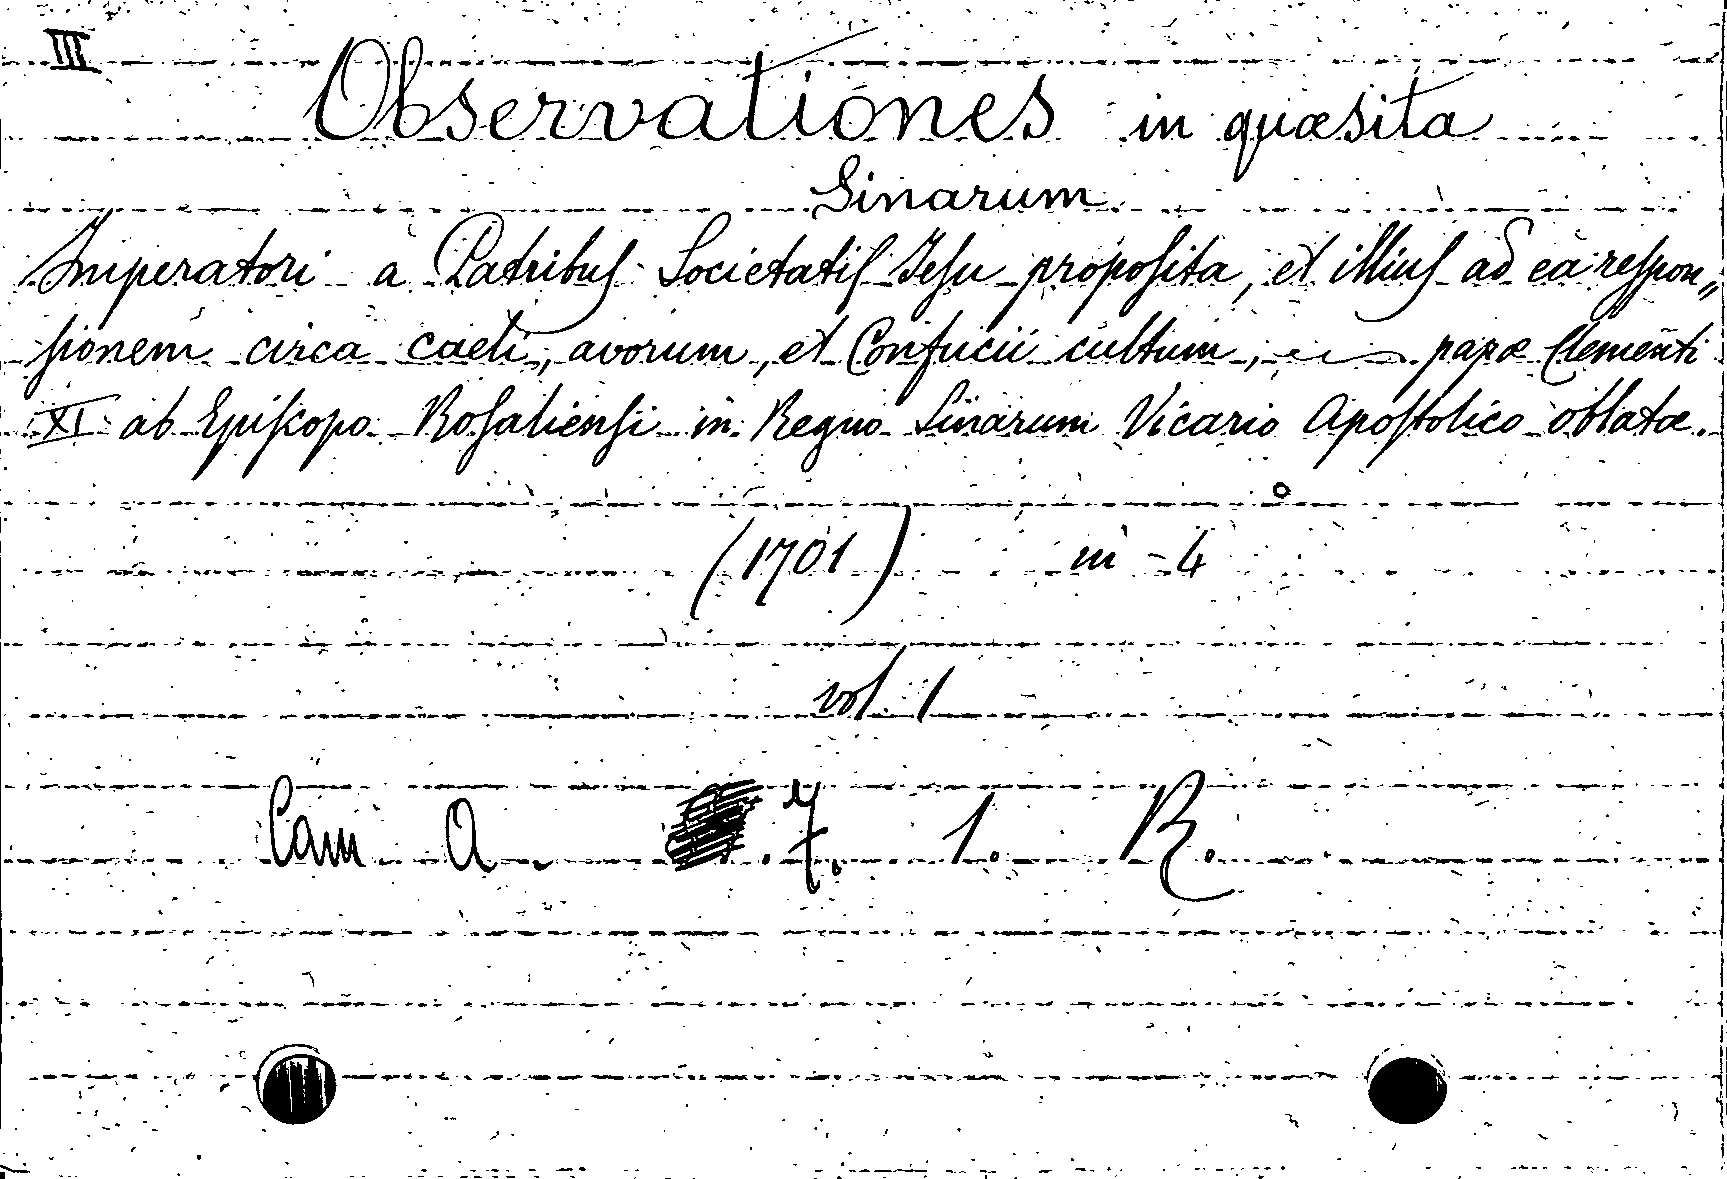 III
Observationes in quæsita
Sinarum
Imperatori a Patribuſ Societatiſ Jeſu propoſita, et illiuſ ad ea reſpon„
ſionem circa caeli, avorum, et Confucii cultum, papæ Clementi
XI ab Epiſcopo Roſalienſi in Regno Sinarum Vicario Apoſtolico oblatæ.
(1701) in-4°
vol. 1
Cam A. 7. 1. R.